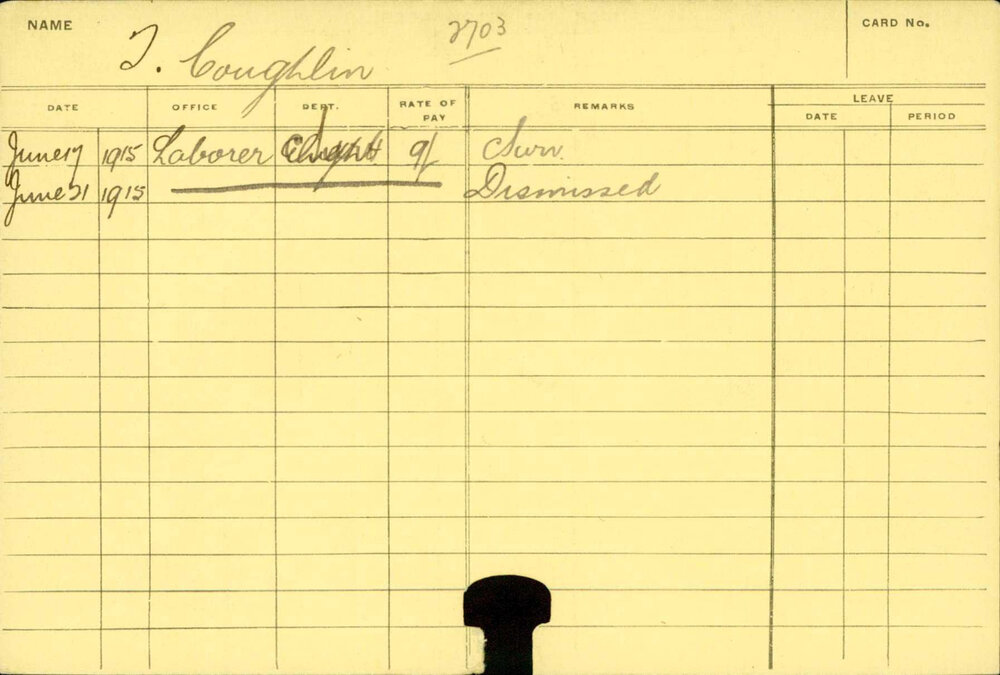 NAME
T. Coughlin
2703
CARD No.
DATE OFFICE DEPT. RATE OF PAY REMARKS LEAVE
DATE PERIOD
June 17 1915 Laborer 9/
June 21 1915 Dismissed